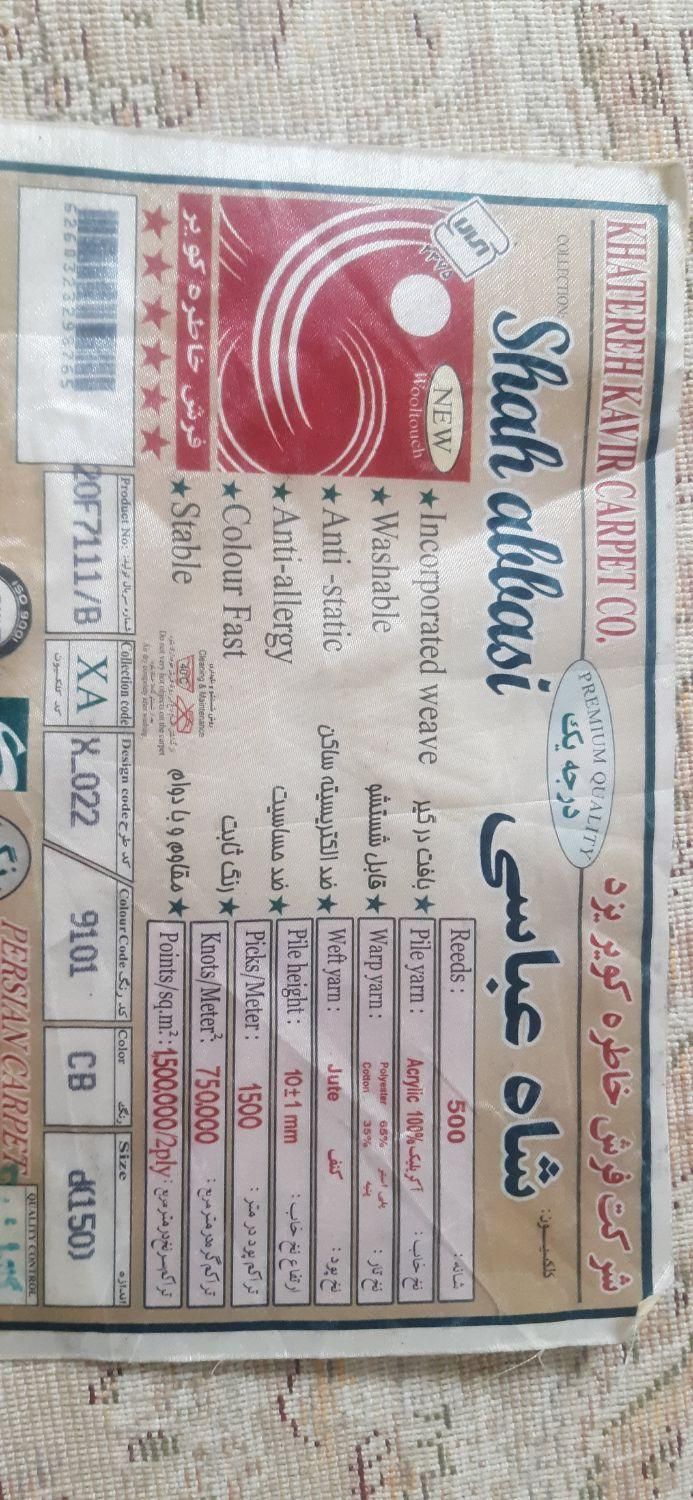 KHATEREH KAVIR CARPET CO.
شرکت فرش خاطره کویر یزد
PREMIUM QUALITY
درجه یک
COLLECTION:
کلکسیون:
Shah abbasi
شاه عباسی
NEW
Wooltouch
فرش خاطره کویر
★★★★★
★ Incorporated weave
بافت درگیر ★
★ Washable
قابل شستشو ★
★ Anti -static
ضد الکتریسیته ساکن ★
★ Anti-allergy
ضد حساسیت ★
★ Colour Fast
رنگ ثابت ★
★ Stable
مقاوم و با دوام ★
Cleaning & Maintenance
40°C
Reeds : 500 شانه :
Pile yarn : Acrylic 100% آکریلیک نخ خاب :
Warp yarn : Polyester 65% پلی استر نخ تار :
Cotton 35% پنبه
Weft yarn : Jute کنف نخ پود :
Pile height : 10±1 mm ارتفاع نخ خاب :
Picks/Meter : 1500 تراکم پود در متر :
Knots/Meter² : 750,000 تراکم گره در متر مربع :
Points/sq.m² : 1500,000/2ply تراکم سرنخ در متر مربع :
6260323293765
Product No: شماره سریال تولید:
20F7111/B
Collection code کد کلکسیون
XA
Design code کد طرح
X_022
Colour Code کد رنگ
9101
Color رنگ
CB
Size اندازه
d(150)
ISO 9001
PERSIAN CARPET
QUALITY CONTROL